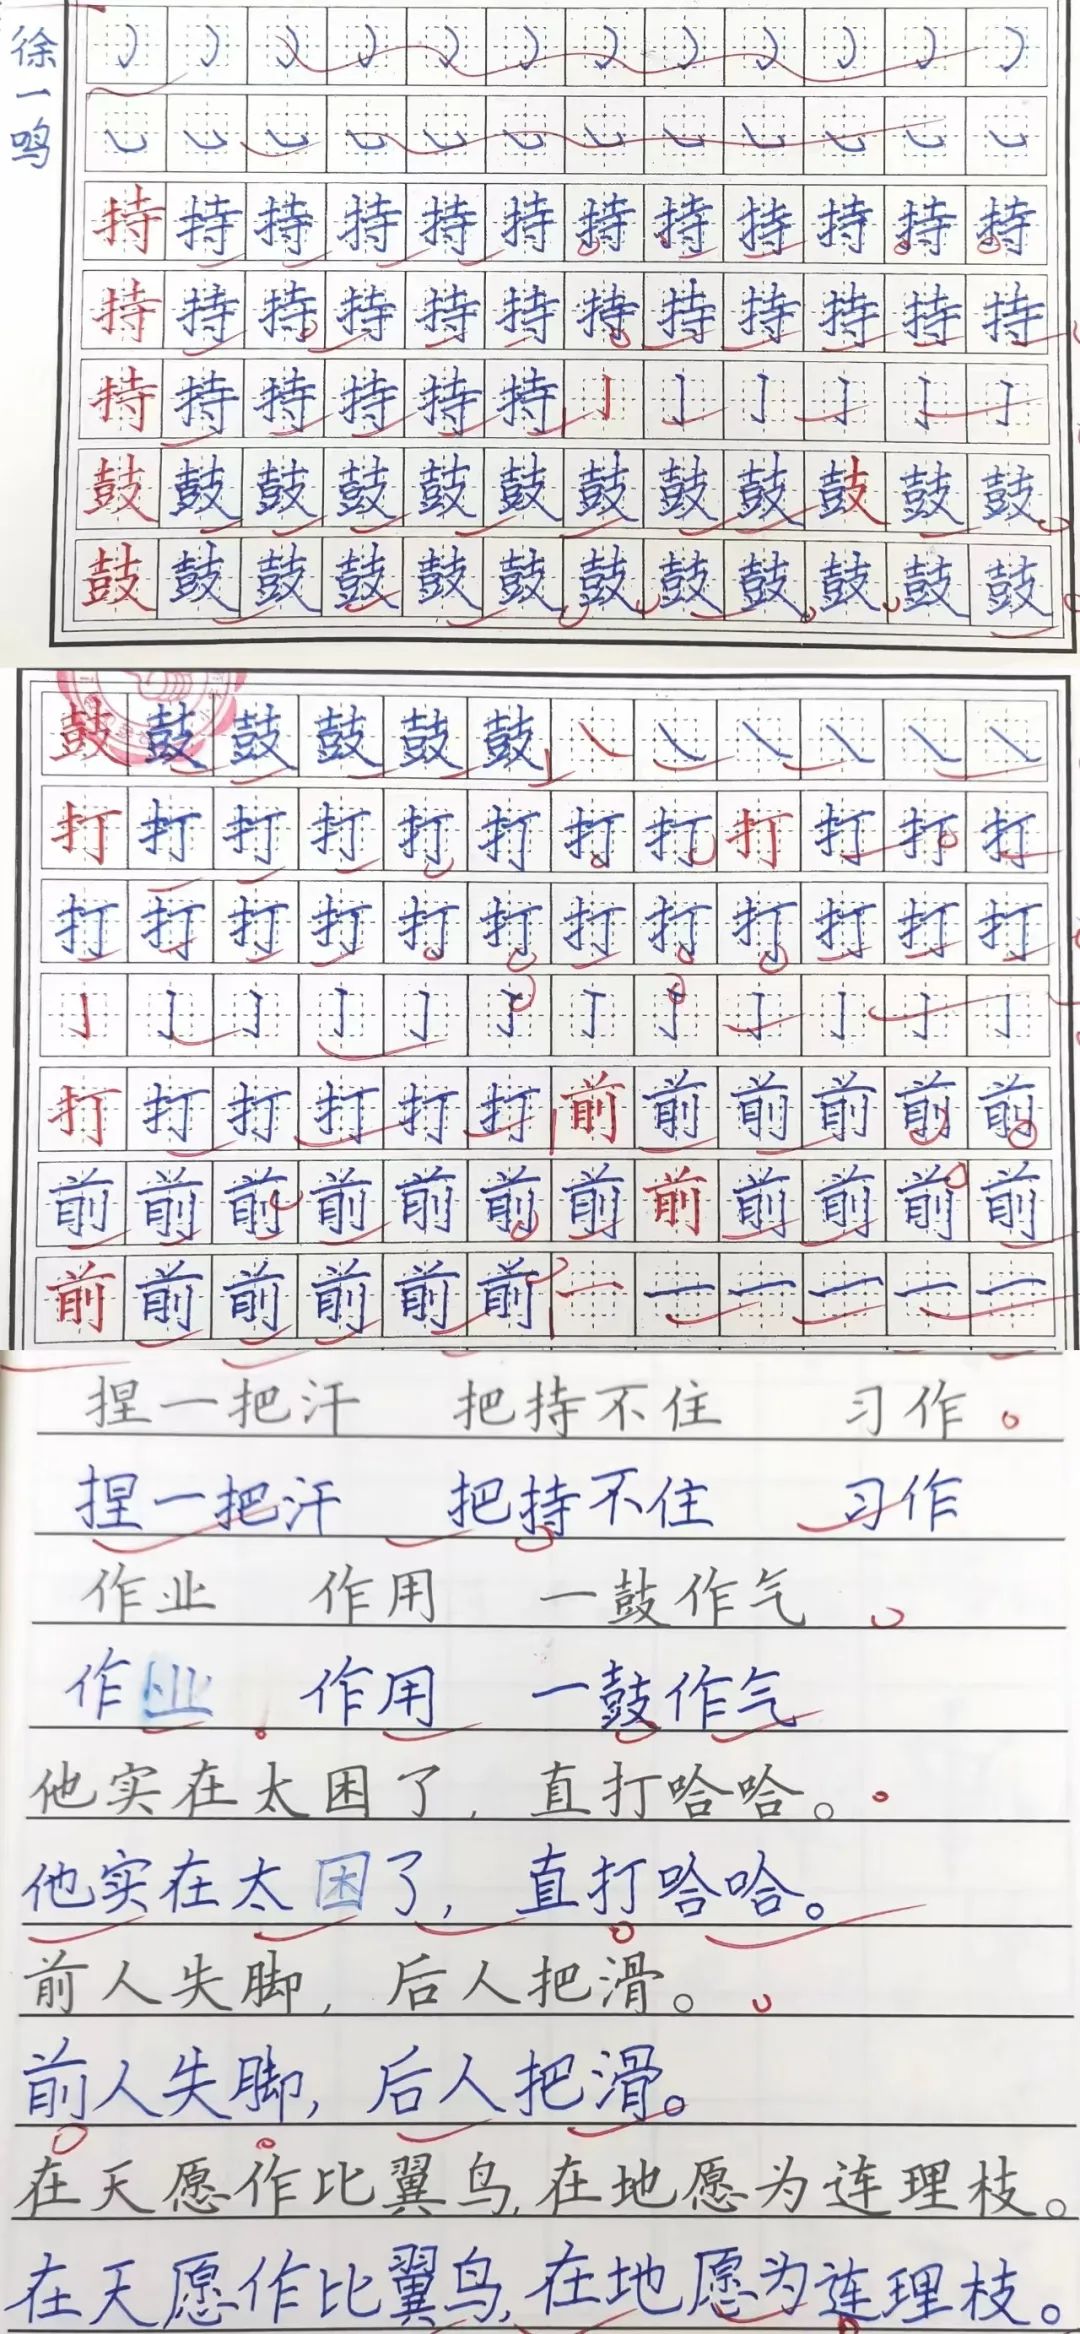 徐一鸣
持持持持持持持持持持持持
持持持持持持持持持持持持
持持持持持持亅亅亅亅亅亅
鼓鼓鼓鼓鼓鼓鼓鼓鼓鼓鼓鼓
鼓鼓鼓鼓鼓鼓鼓鼓鼓鼓鼓鼓
鼓鼓鼓鼓鼓鼓㇏㇏㇏㇏㇏㇏
打打打打打打打打打打打打
打打打打打打打打打打打打
亅亅亅亅亅亅亅亅亅亅亅亅
打打打打打打前前前前前前
前前前前前前前前前前前前
前前前前前前一一一一一一
捏一把汗 把持不住 习作
捏一把汗 把持不住 习作
作业 作用 一鼓作气
作业 作用 一鼓作气
他实在太困了，直打哈哈。
他实在太困了，直打哈哈。
前人失脚，后人把滑。
前人失脚，后人把滑。
在天愿作比翼鸟,在地愿为连理枝。
在天愿作比翼鸟,在地愿为连理枝。